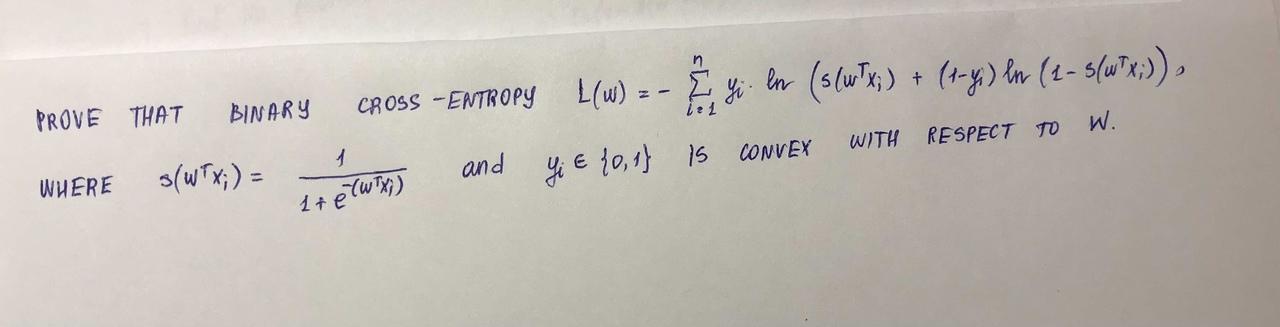 PROVE THAT BINARY CROSS-ENTROPY L(w) = - \sum_{i=1}^{n} y_i · ln (s(w^T x_i) + (1-y_i) ln (1 - s(w^T x_i)),
WHERE s(w^T x_i) = \frac{1}{1 + e^{-(w^T x_i)}} and y_i ∈ {0,1} IS CONVEX WITH RESPECT TO W.